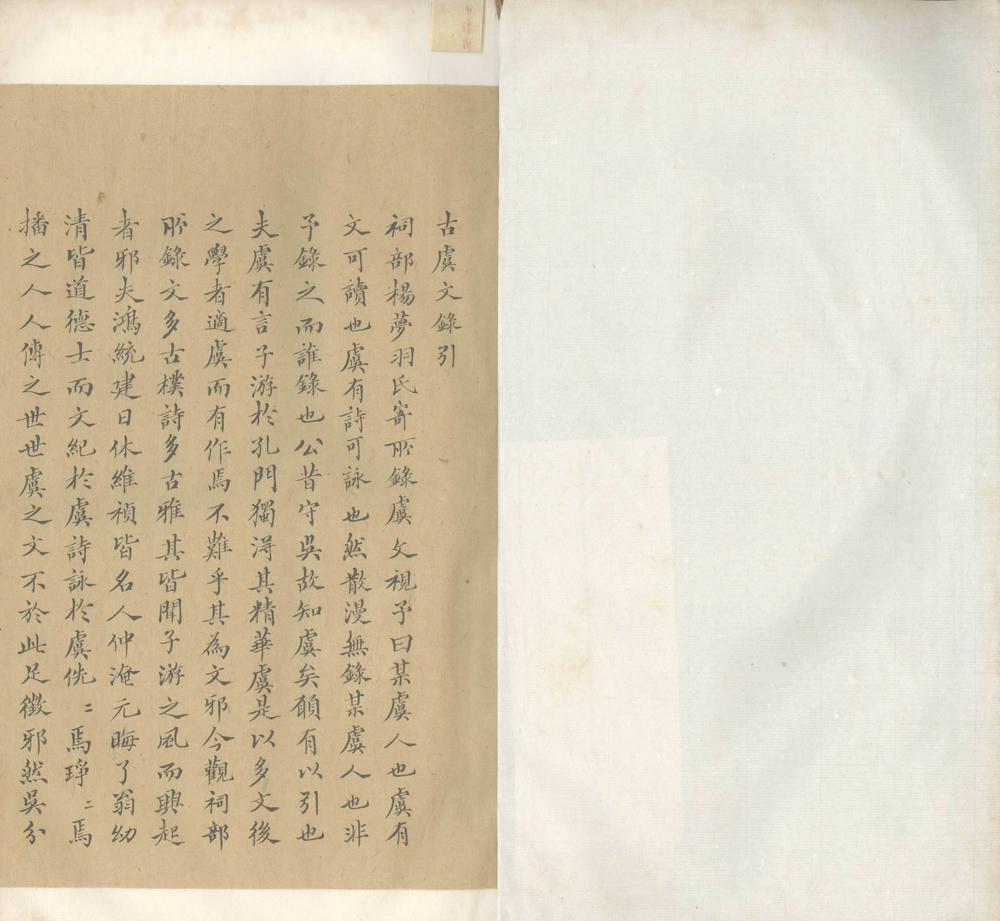 古虞文錄引
祠部楊夢羽氏寄所錄虞文視予曰某虞人也虞有
文可讀也虞有詩可詠也然散漫無錄某虞人也非
予錄之而誰錄也公昔守吳故知虞矣願有以引也
夫虞有言子游於孔門獨淂其精華虞是以多文後
之學者適虞而有作焉不難乎其為文邪今觀祠部
所錄文多古樸詩多古雅其皆聞子游之風而興起
者邪夫鴻統建日休維禎皆名人仲淹元晦了翁幼
清皆道德士而文紀於虞詩詠於虞侁〻焉琤〻焉
播之人人傳之世世虞之文不於此足徵邪然吳分